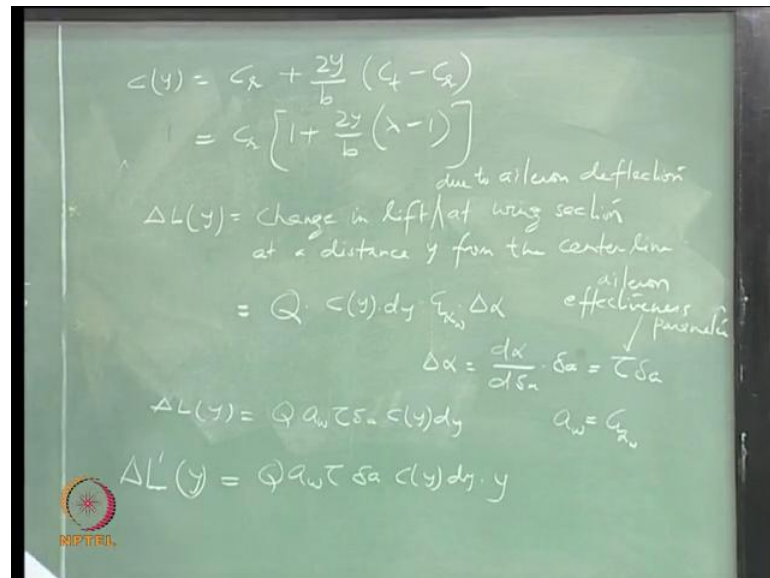 c(y) = C_r + 2y/b (C_t - C_r)
= C_r [1 + 2y/b (λ - 1)]
due to aileron deflection
ΔL(y) = change in lift ∧ at wing section
at a distance y from the center line
= Q · c(y) · dy · C_{L_{α_w}} · Δα
aileron effectiveness parameter
Δα = dα/dδ_a · δ_a = τ δ_a
ΔL(y) = Q a_w τ δ_a c(y) dy a_w = C_{L_{α_w}}
ΔL'(y) = Q a_w τ δ_a c(y) dy · y
NPTEL